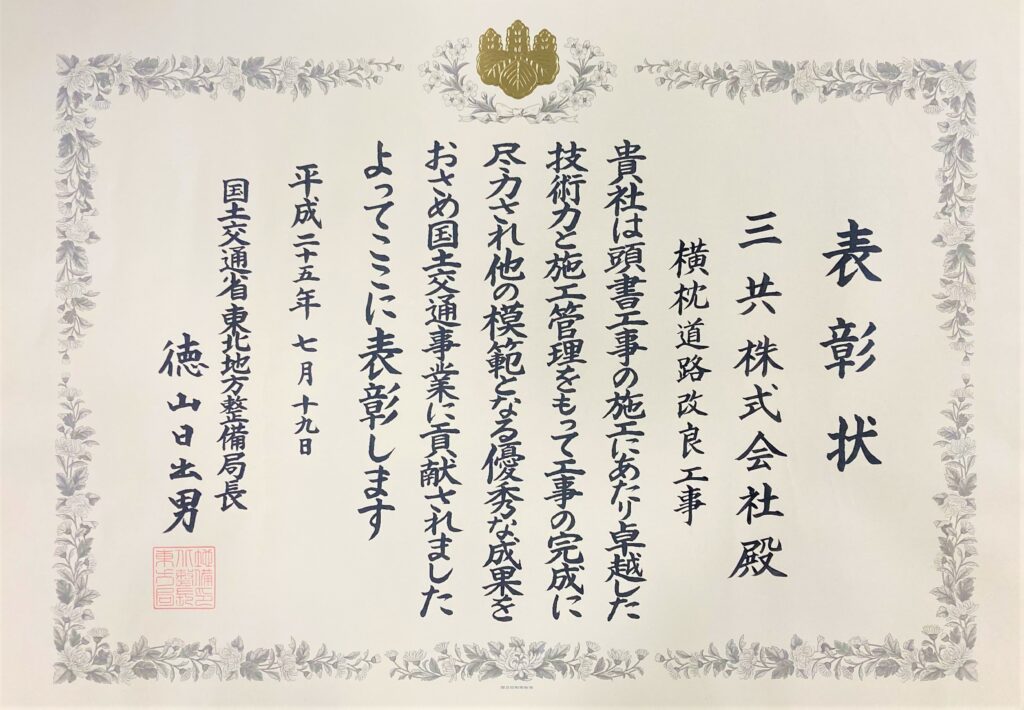 表彰状
三共株式会社殿
横枕道路改良工事
貴社は頭書工事の施工にあたり卓越した
技術力と施工管理をもって工事の完成に
尽力され他の模範となる優秀な成果を
おさめ国土交通事業に貢献されました
よってここに表彰します
平成二十五年七月十九日
国土交通省東北地方整備局長
徳山日出男